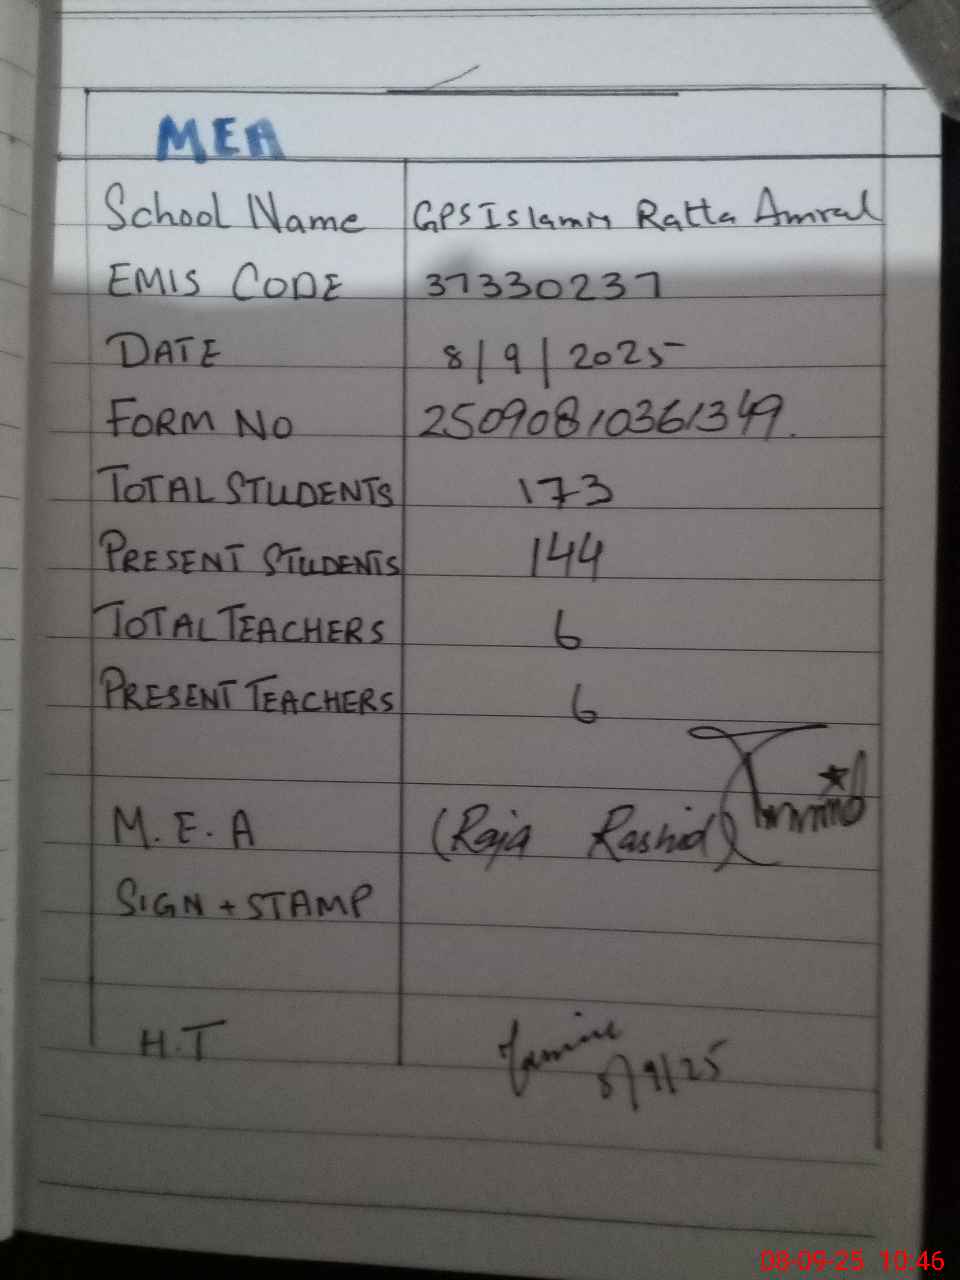 MEA
School Name GPS Islamia Ratta Amral
EMIS CODE 37330237
DATE 8/9/2025
FORM NO 25090810361349.
TOTAL STUDENTS 173
PRESENT STUDENTS 144
TOTAL TEACHERS 6
PRESENT TEACHERS 6
M.E.A (Raja Rashid)
SIGN + STAMP
H.T
8/9/25
08-09-25 10:46